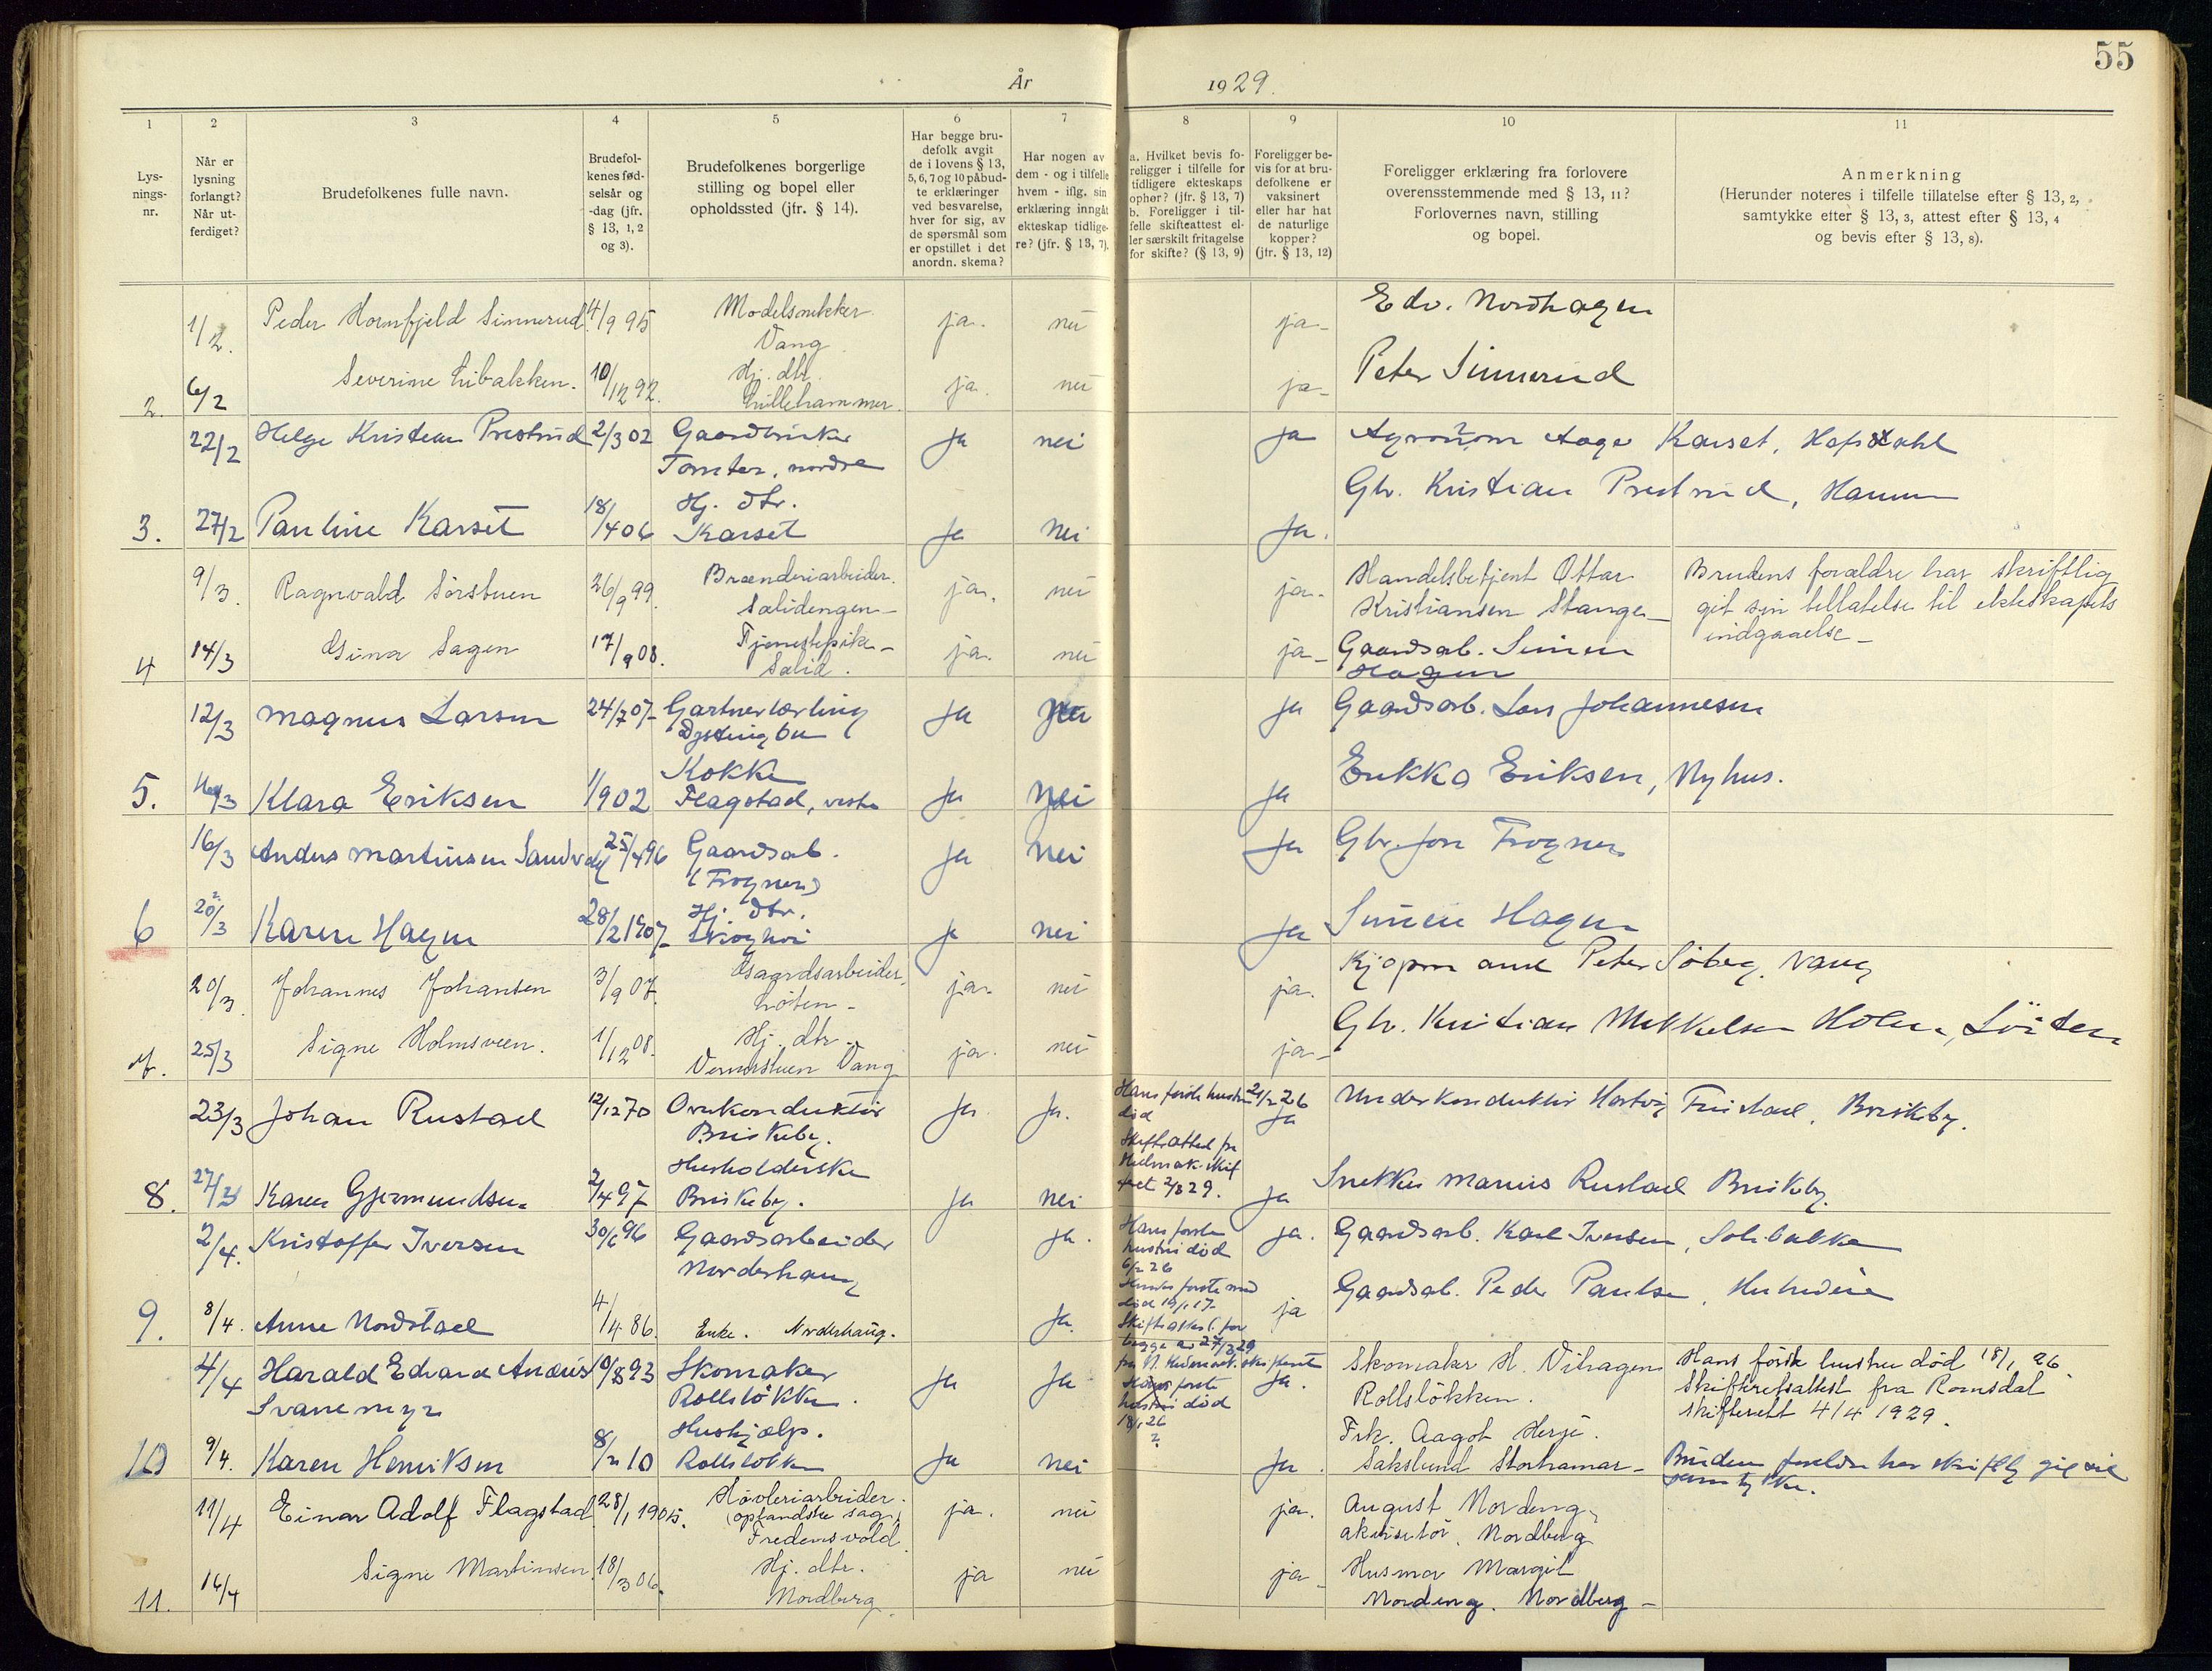 55
År 1929.
1 2 3 4 5 6 7 8 9 10 11
Lysningsnr.
Når er lysning forlangt? Når utferdiget?
Brudefolkenes fulle navn.
Brudefolkenes fødselsår og -dag (jfr. § 13, 1, 2 og 3).
Brudefolkenes borgerlige stilling og bopel eller opholdssted (jfr. § 14).
Har begge brudefolk avgit de i lovens § 13, 5, 6, 7 og 10 påbudte erklæringer ved besvarelse, hver for sig, av de spørsmål som er opstillet i det anordn. skema?
Har nogen av dem - og i tilfelle hvem - iflg. sin erklæring inngåt ekteskap tidligere? (jfr. § 13, 7).
a. Hvilket bevis foreligger i tilfelle for tidligere ekteskaps ophør? (jfr. § 13, 7) b. Foreligger i tilfelle skifteattest eller særskilt fritagelse for skifte? (§ 13, 9)
Foreligger bevis for at brudefolkene er vaksinert eller har hat de naturlige kopper? (jfr. § 13, 12)
Foreligger erklæring fra forlovere overensstemmende med § 13, 11? Forlovernes navn, stilling og bopel.
Anmerkning (Herunder noteres i tilfelle tillatelse efter § 13, 2, samtykke efter § 13, 3, attest efter § 13, 4 og bevis efter § 13, 8).
1/2. Peder Hornfjeld Sinnerud 4/9 95 Modelsnekker Vang ja. nei ja- Edv. Nordhagen
2. 6/2 Severine Libakken. 10/12 92. Hj. dtr. Lillehammer. ja. nei ja- Peter Sinnerud
22/2 Helge Kristian Prestrud 2/3 02 Gaardbruker Tomter, nordre Ja nei Ja Agronom Aage Karset, Hafsdahl
3. 27/2 Pauline Karset 18/4 06 Hj. dtr. Karset Ja nei Ja. Gbr. Kristian Prestrud, Hamar
9/3. Ragnvald Sørstuen 26/9 99. Brænderiarbeider. Sælidengen- ja. nei ja- Handelsbetjent Ottar Kristiansen Stange- Brudens forældre har skriftlig git sin tillatelse til ekteskapets indgaaelse-
4 14/3 Gina Hagen 17/9 08. Tjenestepike- Sælid. ja. nei ja- Gaardsarb. Simen Hagen
12/3 Magnus Larsen 24/7 07- Gartnerlærling Dystingbu Ja nei Ja Gaardsarb. Lars Johannesen
5. 16/3 Klara Eriksen 1/9 02 Kokke Flagstad, vestre Ja nei Ja Erikka Eriksen, Nyhus.
16/3 Anders Martinsen Sandvik 25/4 96 Gaardsarb. (Frogner) Ja nei Ja Gbr. Jon Frogner
6 20/3 Karen Hagen 28/2 1907- Hj. dtr. Skoghøi Ja nei Ja Simen Hagen
20/3. Johannes Johansen 3/9 07. Gaardsarbeider, Løten- ja. nei ja. Kjøpmann Peter Søberg, Vang
7. 25/3 Signe Holmsveen. 1/12 08. Hj. dtr. Vang ja. nei ja- Gbr. Kristian Mikkelsen Holm, Löiten
23/3 Johan Rustad 12/12 70 Ovrkonduktör Briskeby. Ja Ja. Hans første hustru død 21/2 26 Ja Underkonduktör Hartvig Fristad, Briskeby.
8. 27/3 Karen Gjermundsen 2/4 97 Husholderske Briskeby. Ja nei Skifteattest fra Hedmark skifteret 2/3 29. Ja Snekker Marius Rustad Briskeby.
2/4. Kristoffer Iversen 30/6 96 Gaardsarbeider Norderhaug ja. Hans første hustru død 6/2 26 ja. Gaardsarb. Karl Iversen, Solibakken
9. 8/4. Anne Nordstad 4/4 86. Enke. Norderhaug. Ja. Hendes første mand død 19/1 17. Skifteattest for begge av 27/3 29 fra N. Hedemark skifteret ja Gaardsarb. Peder Paulsen,
4/4 Harald Edvard Andreas Svanemyr 10/8 93 Skomaker Rollsløkken. Ja Ja Hans første hustru død 18/1 26 ? Ja. Skomaker H. Vihagen Rollsløkken. Hans første hustru død 18/1 26. Skifteretsattest fra Romsdal skifterett 4/4 1929.
10 9/4. Karen Henriksen 8/2 10 Hushjælp. Rollsløkken Ja nei Ja. Frk. Aagot Herje. Sakslund Storhamar- Brudens foreldre har skriftlig git sit samtykke.
11/4 Einar Adolf Flagstad 28/1 1905. Høvleriarbeider (oplandske sag.) Fredensvold. ja. nei ja. August Nordeng, akkvisitør, Nordberg
11. 16/4 Signe Martinsen. 18/3 06. Hj. dtr. Nordberg. ja nei ja- Husmor Margit Nordeng. Nordberg-